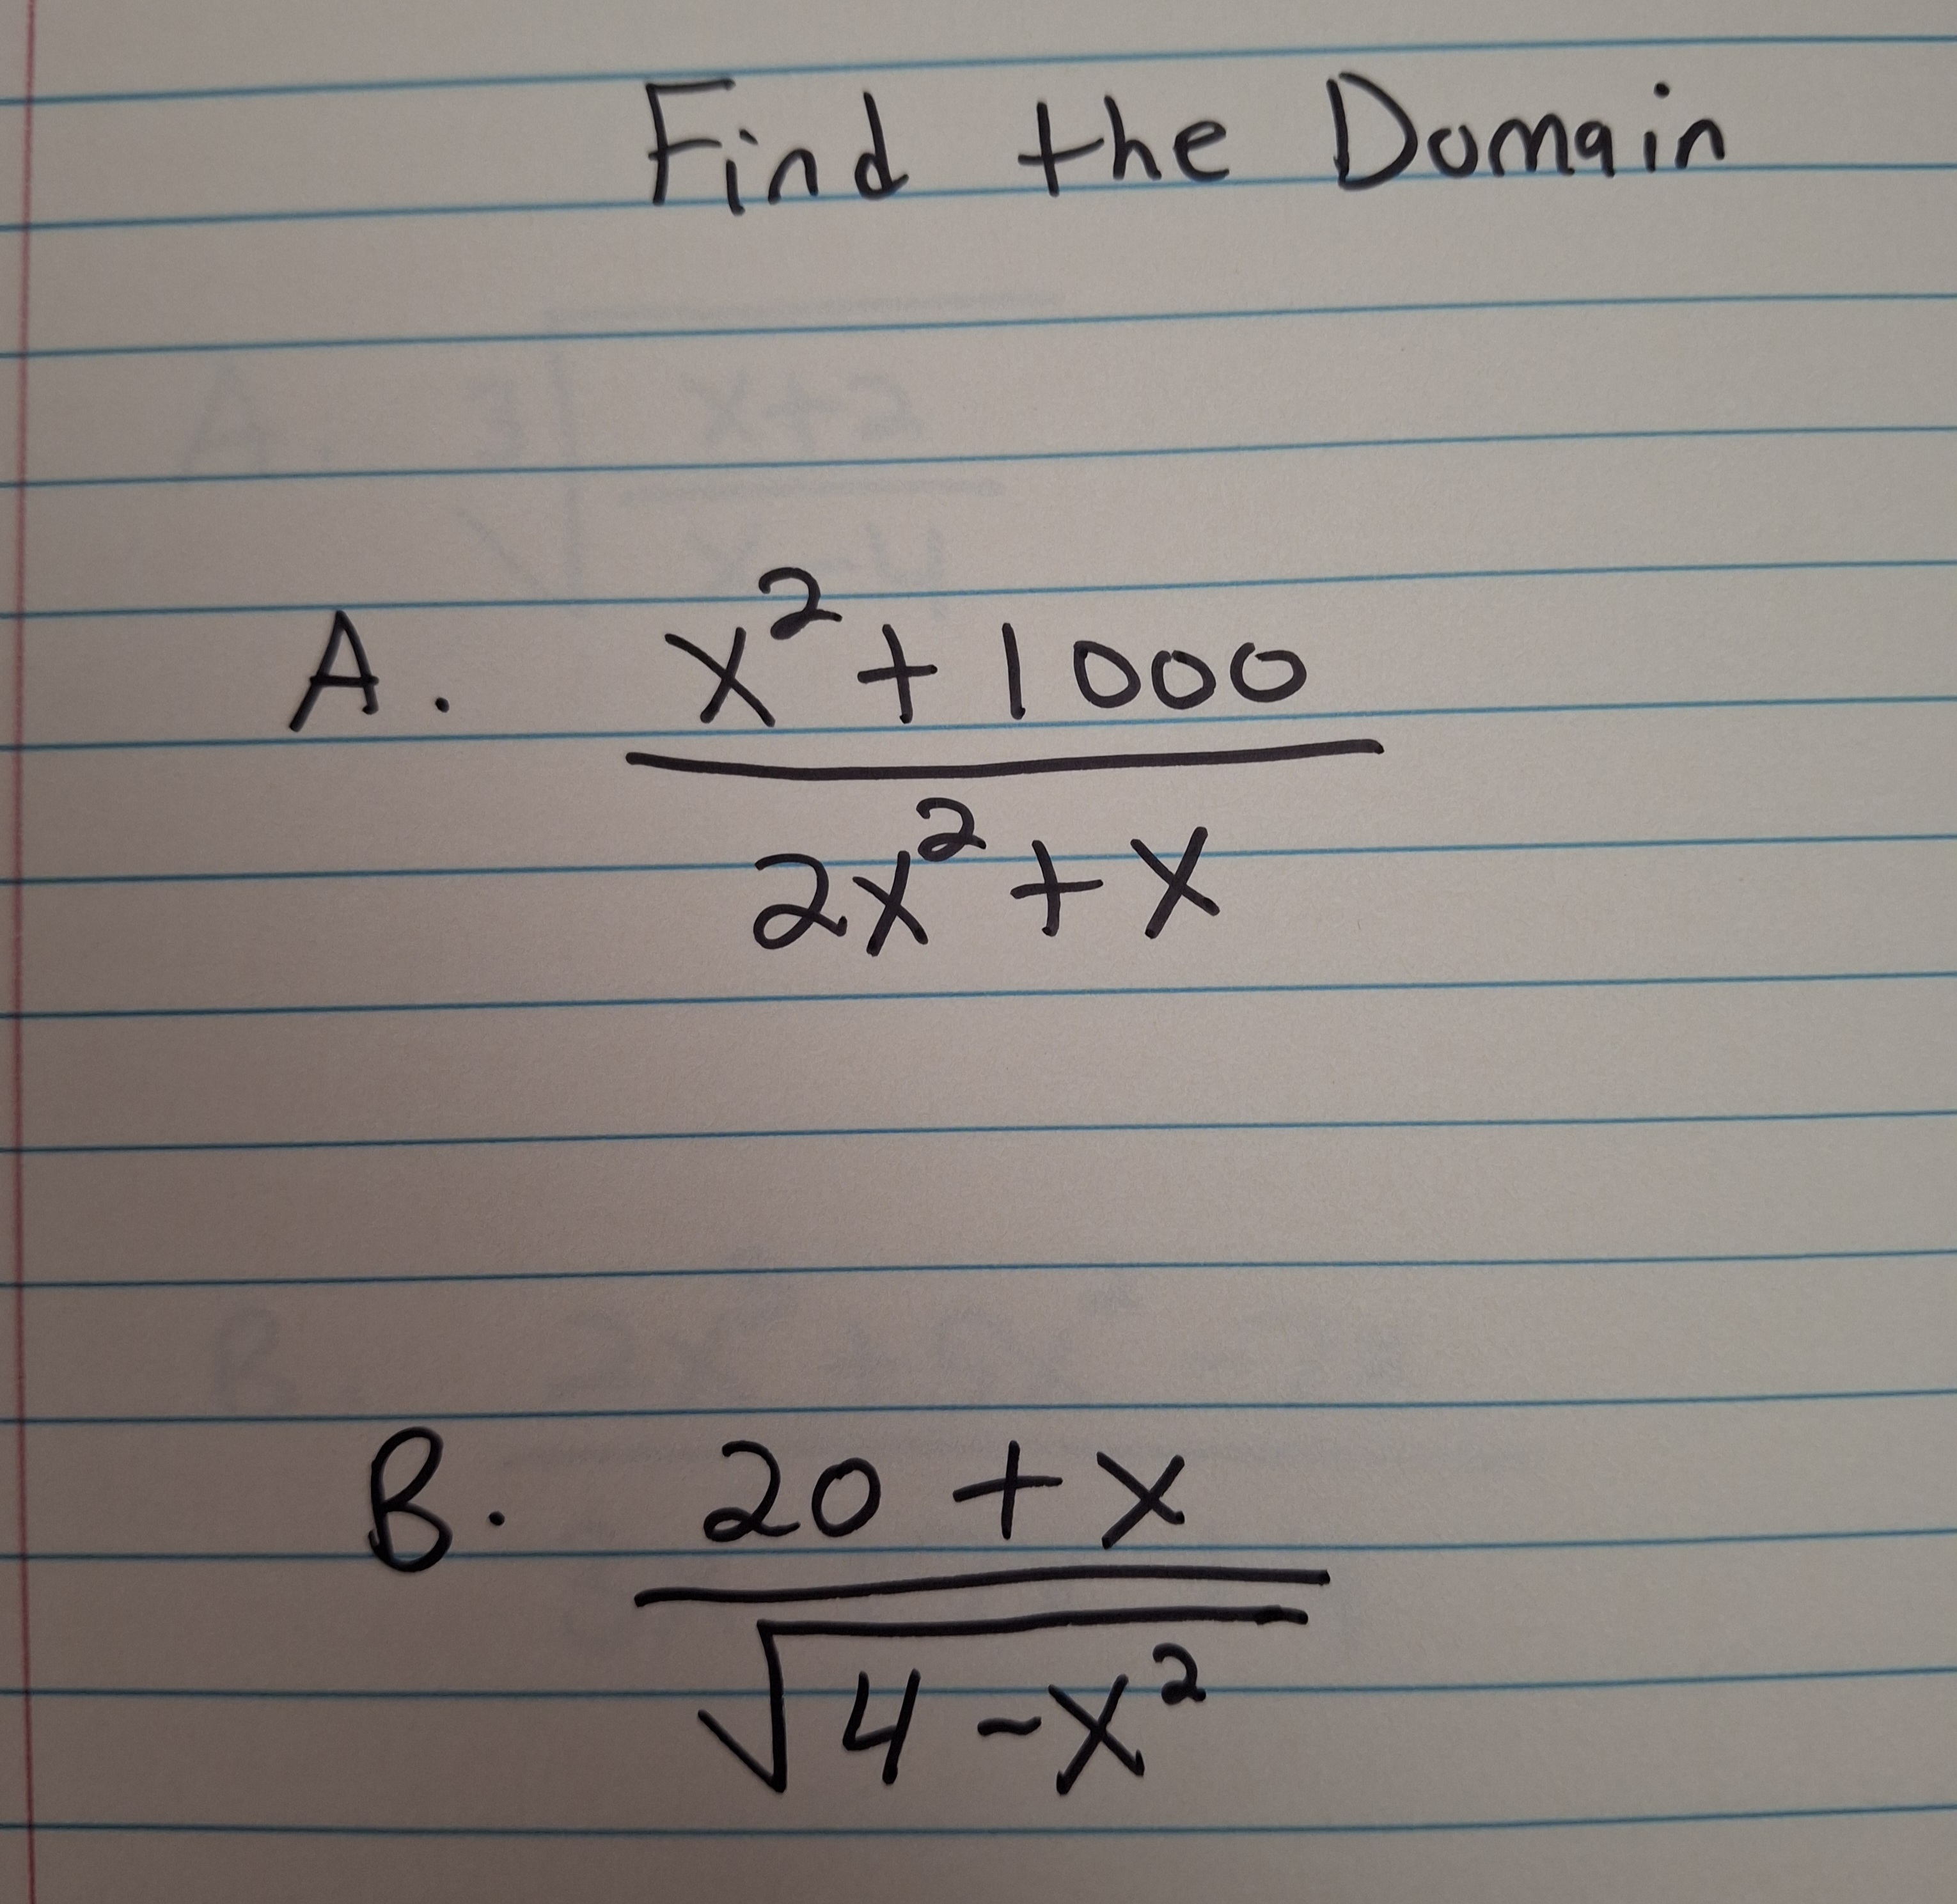 Find the Domain
A. x² + 1000
2x² + x
B. 20 + x
√4 - x²